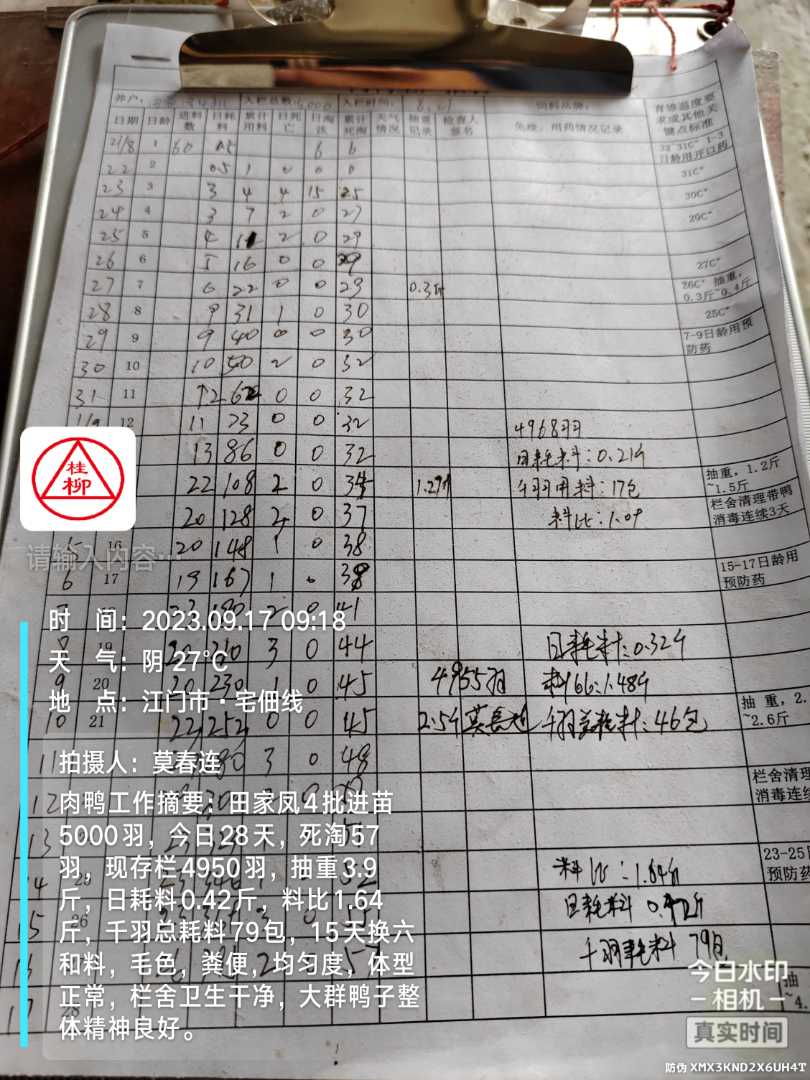 养户: 入栏总数:5000 入栏时间:8.21 饲料品牌: 育雏温度要求或其他关键点标准
日期 日龄 进料数 日耗料 累计用料 日死亡 日淘汰 累计死淘 天气情况 抽重记录 检查人签名 免疫、用药情况记录
21/8 1 60 0.5 6 6 32~31C° 1-3日龄用开口药
22 2 0.5 1 0 0 31C°
23 3 3 4 4 15 25 30C°
24 4 3 7 2 0 27 29C°
25 5 4 11 2 0 29
26 6 5 16 0 0 29 27C°
27 7 6 22 0 0 29 0.3斤 26C° 抽重,0.3斤~0.4斤
28 8 9 31 1 0 30 25C°
29 9 9 40 0 0 30 7-9日龄用预防药
30 10 10 50 2 0 32
31 11 12 62 0 0 32
1/9 12 11 73 0 0 32 4968羽
13 86 0 0 32 日耗料:0.21斤
22 108 2 0 34 1.27斤 千羽用料:17包 抽重,1.2斤~1.5斤
20 128 2 0 37 料比:1.09 栏舍清理带鸭消毒连续3天
5 16 20 148 1 0 38
6 17 19 167 1 0 38 15-17日龄用预防药
23 190 2 0 41
8 19 20 210 3 0 44 日耗料:0.32斤
9 20 20 230 1 0 45 4955羽 料比:1.48斤
10 21 22 252 0 0 45 2.5斤 莫春连 千羽总耗料:46包 抽重,2.~2.6斤
11 3 0 48
12 栏舍清理消毒连续
13
14 25 料比:1.64斤 23-25日预防药
15 26 日耗料 0.42斤
16 57 千羽耗料 79包
17 28 抽~4.
桂柳
请输入内容…
时 间：2023.09.17 09:18
天 气：阴 27℃
地 点：江门市·宅佃线
拍摄人：莫春连
肉鸭工作摘要：田家凤4批进苗
5000羽，今日28天，死淘57
羽，现存栏4950羽，抽重3.9
斤，日耗料0.42斤，料比1.64
斤，千羽总耗料79包，15天换六
和料，毛色，粪便，均匀度，体型
正常，栏舍卫生干净，大群鸭子整
体精神良好。
今日水印
相机
真实时间
防伪 XMX3KND2X6UH4T